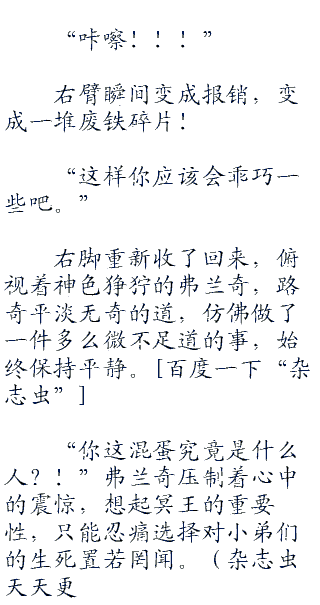 “咔嚓！！！”
右臂瞬间变成报销，变
成一堆废铁碎片！
“这样你应该会乖巧一
些吧。”
右脚重新收了回来，俯
视着神色狰狞的弗兰奇，路
奇平淡无奇的道，仿佛做了
一件多么微不足道的事，始
终保持平静。[百度一下“杂
志虫”]
“你这混蛋究竟是什么
人？！”弗兰奇压制着心中
的震惊，想起冥王的重要
性，只能忍痛选择对小弟们
的生死置若罔闻。（杂志虫
天天更